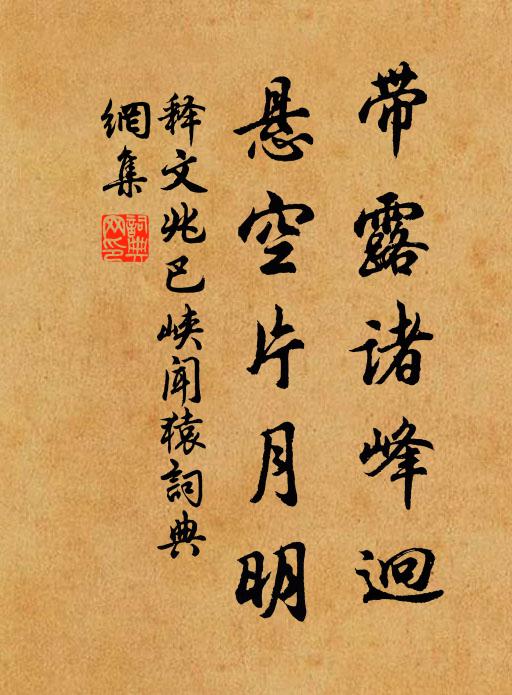 带露诸峰迥
悬空片月明
释文兆巴峡闻猿词典
網集
詞典网印